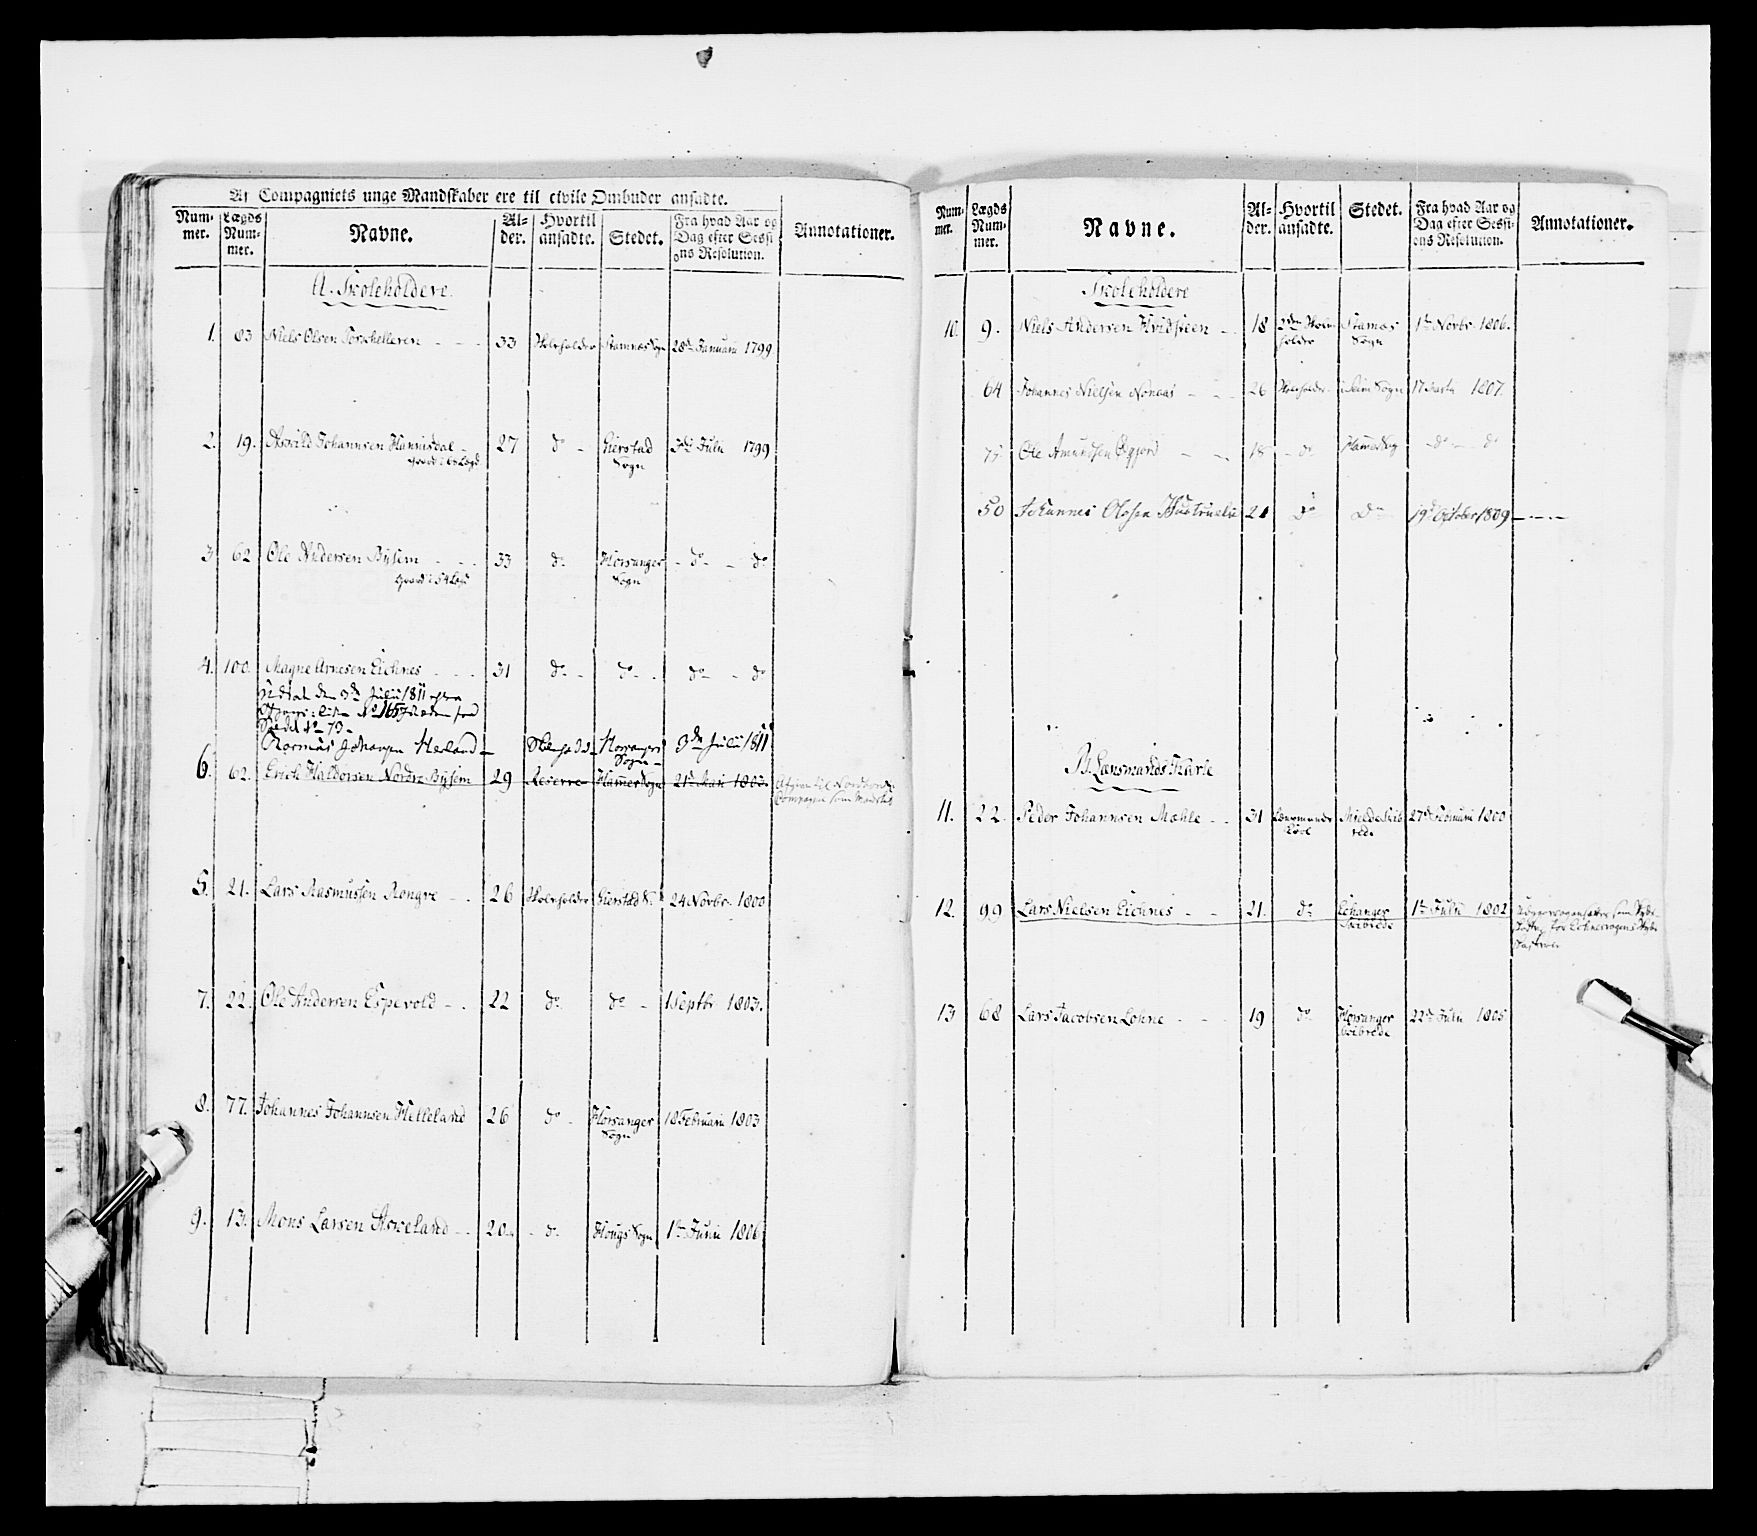 Af Compagniets unge Mandskaber ere til civile Ombuder ansadte.
Num-mer. Lægds Num-mer. Navne. Al-der. Hvortil ansadte. Stedet. Fra hvad Aar og Dag efter Sessi-ons Resolution. Annotationer.
A. Skoleholdere.
1. 83 Niels Olsen Torskelleren 33 Skoleholder Stamnæs Sogn 28de Januarii 1799
2. 19. Johannsen 27 do Eierstad Sogn 3die Julii 1799
3 62 Ole Andersen Bysem 33 do Horsanger Sogn do do
4. 100. Magne Arnesen Eichnes 31 do do do do
Udslet den 3de Julii 1811
No 73
Rasmus Johansen Herland Horsanger Sogn 3de Julii 1811
6. 62. Erich Haldorsen Nordre Bysem 29 Reserve Hammer Sogn 21de Maii 1803.
Afgiven til Nordhordl. Compagnie som
5. 21. Lars Rasmussen Rongve 26 Skoleholder Eierstad S. 24 Novbr. 1800
7. 22. Ole Andersen Espevold 22 do do 1 Septbr. 1803.
8. 77. Johannes Johannsen Helleland 26 do Horsanger Sogn 18 Februarii 1803
9. 13. Mons Larsen Askeland 20 do Hougs Sogn 1ste Junii 1806
Num-mer. Lægds Num-mer. Navne. Al-der. Hvortil ansadte. Stedet. Fra hvad Aar og Dag efter Sessi-ons Resolution. Annotationer.
Skoleholdere
10. 9. Niels Andersen Hvidsteen 18 Skoleholder Stamæs Sogn 1ste Novbr. 1806.
64 Johannes Nielsen 26 Skoleholder Sogn 17 1807.
75 Ole Amundsen 18 do Hammer Sog do do
50 Johannes Olsen 21 do do 19de October 1809
B. Lænsmands Karle
11. 22. Peder Johannsen Mæhle 31 Lænsmands Karl Mielde Skibrede 27de Februarii 1800
12. 99 Lars Nielsen Eichnes 21. do Echanger Skibrede 1ste Julii 1802
13 68 Lars Jacobsen Lohne 19 do Horsanger Skibrede 22de Julii 1805